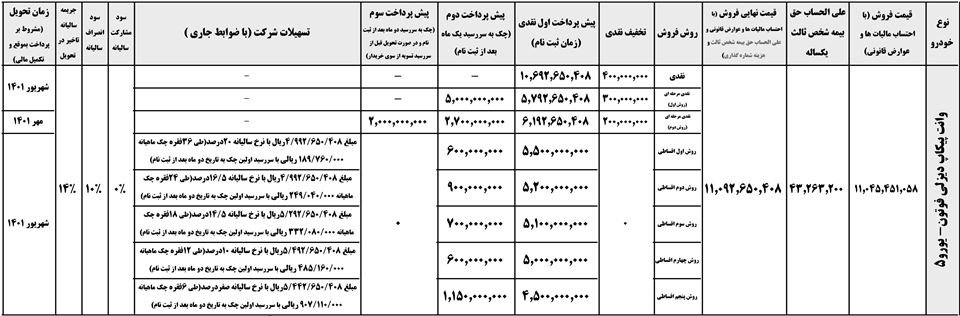 نوع خودرو
قیمت فروش (با احتساب مالیات ها و عوارض قانونی)
علی الحساب حق بیمه شخص ثالث یکساله
قیمت نهایی فروش (با احتساب مالیات ها و عوارض قانونی و علی الحساب حق بیمه شخص ثالث و هزینه شماره گذاری)
روش فروش
تخفیف نقدی
پیش پرداخت اول نقدی (زمان ثبت نام)
پیش پرداخت دوم (چک به سررسید یک ماه بعد از ثبت نام)
پیش پرداخت سوم (چک به سررسید دو ماه بعد از ثبت نام و در صورت تحویل قبل از سررسید تسویه از سوی خریدار)
تسهیلات شرکت (با ضوابط جاری)
سود مشارکت سالیانه
سود انصراف سالیانه
جریمه سالیانه تاخیر در تحویل
زمان تحویل (مشروط بر پرداخت بموقع و تکمیل مالی)
وانت پیکاپ دیزلی فوتون - یورو۵
۱۱,۰۴۵,۴۵۱,۰۵۸
۴۳,۲۶۳,۲۰۰
۱۱,۰۹۲,۶۵۰,۴۰۸
نقدی ۴۰۰,۰۰۰,۰۰۰ ۱۰,۶۹۲,۶۵۰,۴۰۸ — — –
شهریور ۱۴۰۱
نقدی مرحله ای (روش اول) ۳۰۰,۰۰۰,۰۰۰ ۵,۷۹۲,۶۵۰,۴۰۸ ۵,۰۰۰,۰۰۰,۰۰۰ — –
نقدی مرحله ای (روش دوم) ۲۰۰,۰۰۰,۰۰۰ ۶,۱۹۲,۶۵۰,۴۰۸ ۲,۷۰۰,۰۰۰,۰۰۰ ۲,۰۰۰,۰۰۰,۰۰۰ – مهر ۱۴۰۱
روش اول اقساطی ۵,۵۰۰,۰۰۰,۰۰۰ ۶۰۰,۰۰۰,۰۰۰
مبلغ ۴/۹۹۲/۶۵۰/۴۰۸ ریال با نرخ سالیانه ۲۰درصد(طی ۳۶فقره چک ماهیانه
۱۸۹/۷۶۰/۰۰۰ ریالی با سررسید اولین چک به تاریخ دو ماه بعد از ثبت نام)
روش دوم اقساطی ۵,۲۰۰,۰۰۰,۰۰۰ ۹۰۰,۰۰۰,۰۰۰
مبلغ ۴/۹۹۲/۶۵۰/۴۰۸ ریال با نرخ سالیانه ۱۶/۵درصد(طی ۲۴فقره چک
ماهیانه ۲۴۹/۰۴۰/۰۰۰ ریالی با سررسید اولین چک به تاریخ دو ماه بعد از ثبت نام)
روش سوم اقساطی ۰ ۵,۱۰۰,۰۰۰,۰۰۰ ۷۰۰,۰۰۰,۰۰۰ ۰
مبلغ ۵/۲۹۲/۶۵۰/۴۰۸ ریال با نرخ سالیانه ۱۴/۵درصد(طی ۱۸فقره چک
ماهیانه ۳۳۲/۰۸۰/۰۰۰ ریالی با سررسید اولین چک به تاریخ دو ماه بعد از ثبت نام)
روش چهارم اقساطی ۵,۰۰۰,۰۰۰,۰۰۰ ۶۰۰,۰۰۰,۰۰۰
مبلغ ۵/۴۹۲/۶۵۰/۴۰۸ ریال با نرخ سالیانه ۱۰درصد(طی ۱۲فقره چک ماهیانه
۴۸۵/۱۶۰/۰۰۰ ریالی با سررسید اولین چک به تاریخ دو ماه بعد از ثبت نام)
روش پنجم اقساطی ۴,۵۰۰,۰۰۰,۰۰۰ ۱,۱۵۰,۰۰۰,۰۰۰
مبلغ ۵/۴۴۲/۶۵۰/۴۰۸ ریال با نرخ سالیانه صفردرصد(طی ۶فقره چک ماهیانه
۹۰۷/۱۱۰/۰۰۰ ریالی با سررسید اولین چک به تاریخ دو ماه بعد از ثبت نام)
۰% ۱۰% ۱۴%
شهریور ۱۴۰۱